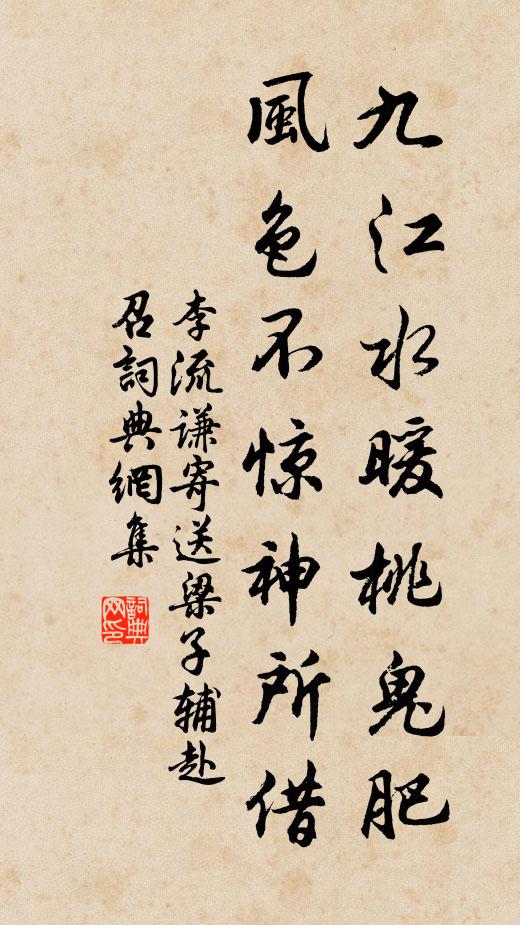 九江水暖桃鬼肥
風色不惊神所借
李流谦寄送梁子辅赴
召詞典網集
詞典
网印